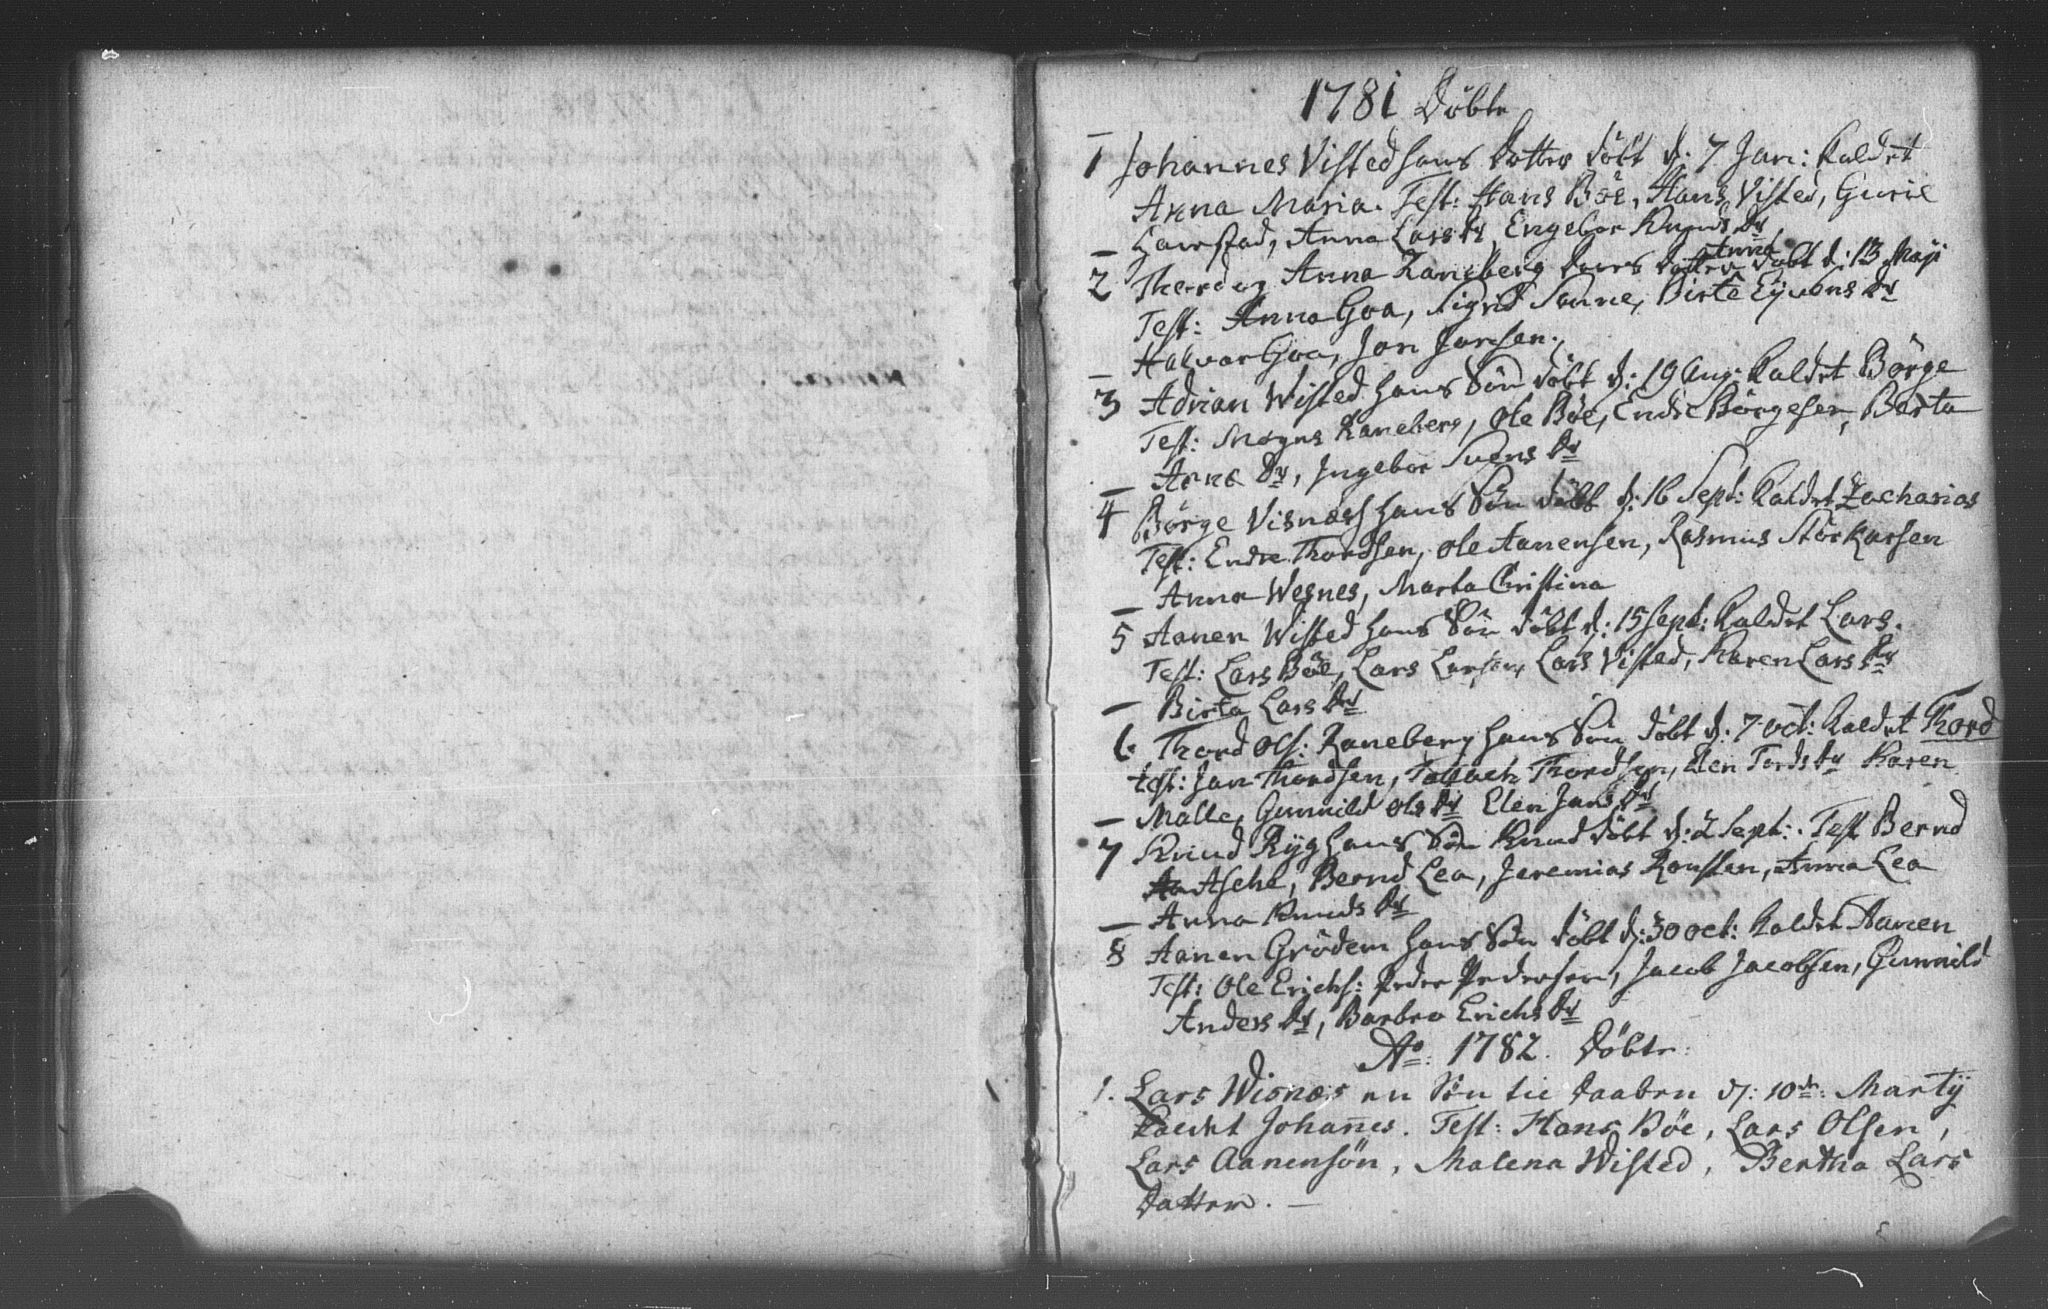 1781 Döbte
1 Johannes Visted hans Dotter döbt d: 7 Jan: Kaldet
Anna Maria. Test: Hans Böe, Hans Visted, Gurie
Harestad, Anna Lars Dr, Engebor Knuds Dr,
2 Anna Raneberg Dotter Anna döbt d: 13 Maji
Test: Anna Goa, Sigrid Sunne, Birte Eyvons Dr
Halvor Goa, Jon Jonsen.
3 Adrian Wisted hans Sön döbt d: 19 Aug: Kaldet Börge
Test: Mogns Raneberg, Ole Böe, Endre Börgesen, Barta
Arne Dr, Ingebor Svens Dr
4 Börge Visnæss hans Sön döbt d: 16 Sept: Kaldet Zacharias
Test: Endre Thordsen, Ole Aanensen, Rasmus Störkarsen
Anna Wesnes, Marta Christina
5 Aanen Wisted hans Sön döbt d: 15 Sept: Kaldet Lars.
Test: Lars Böe, Lars Larsen, Lars Visted, Karen Lars Dr
Birta Lars Dr
6. Thord Ols: Raneberg hans Sön döbt d: 7 oct: Kaldet Thord
test: Jan Thordsen, Thordsen, Elen Tords Dr Karen
Malle, Gunnild Ols Dr Elen Jans Dr
7 Knud Ryg hans Sön Knud döbt d: 2 Sept: Test Bernd
Aske, Bernd Lea, Jeremias Ronsten, Anna Lea
Anna Knuds Dr
8 Aanen Grödem hans Sön döbt d: 30 oct: Kaldet Aanen
Test: Ole Erichs: Peder Pedersen, Jacob Jacobsen, Gunnild
Anders Dr, Barbro Erichs Dr
Ao: 1782. Döbte:
1. Lars Wisnæs en Sön til Daaben d: 10de: Martij
Kaldet Johannes. Test: Hans Böe, Lars Olsen,
Lars Aanensön, Malena Wisted, Bertha Lars
Datter. —